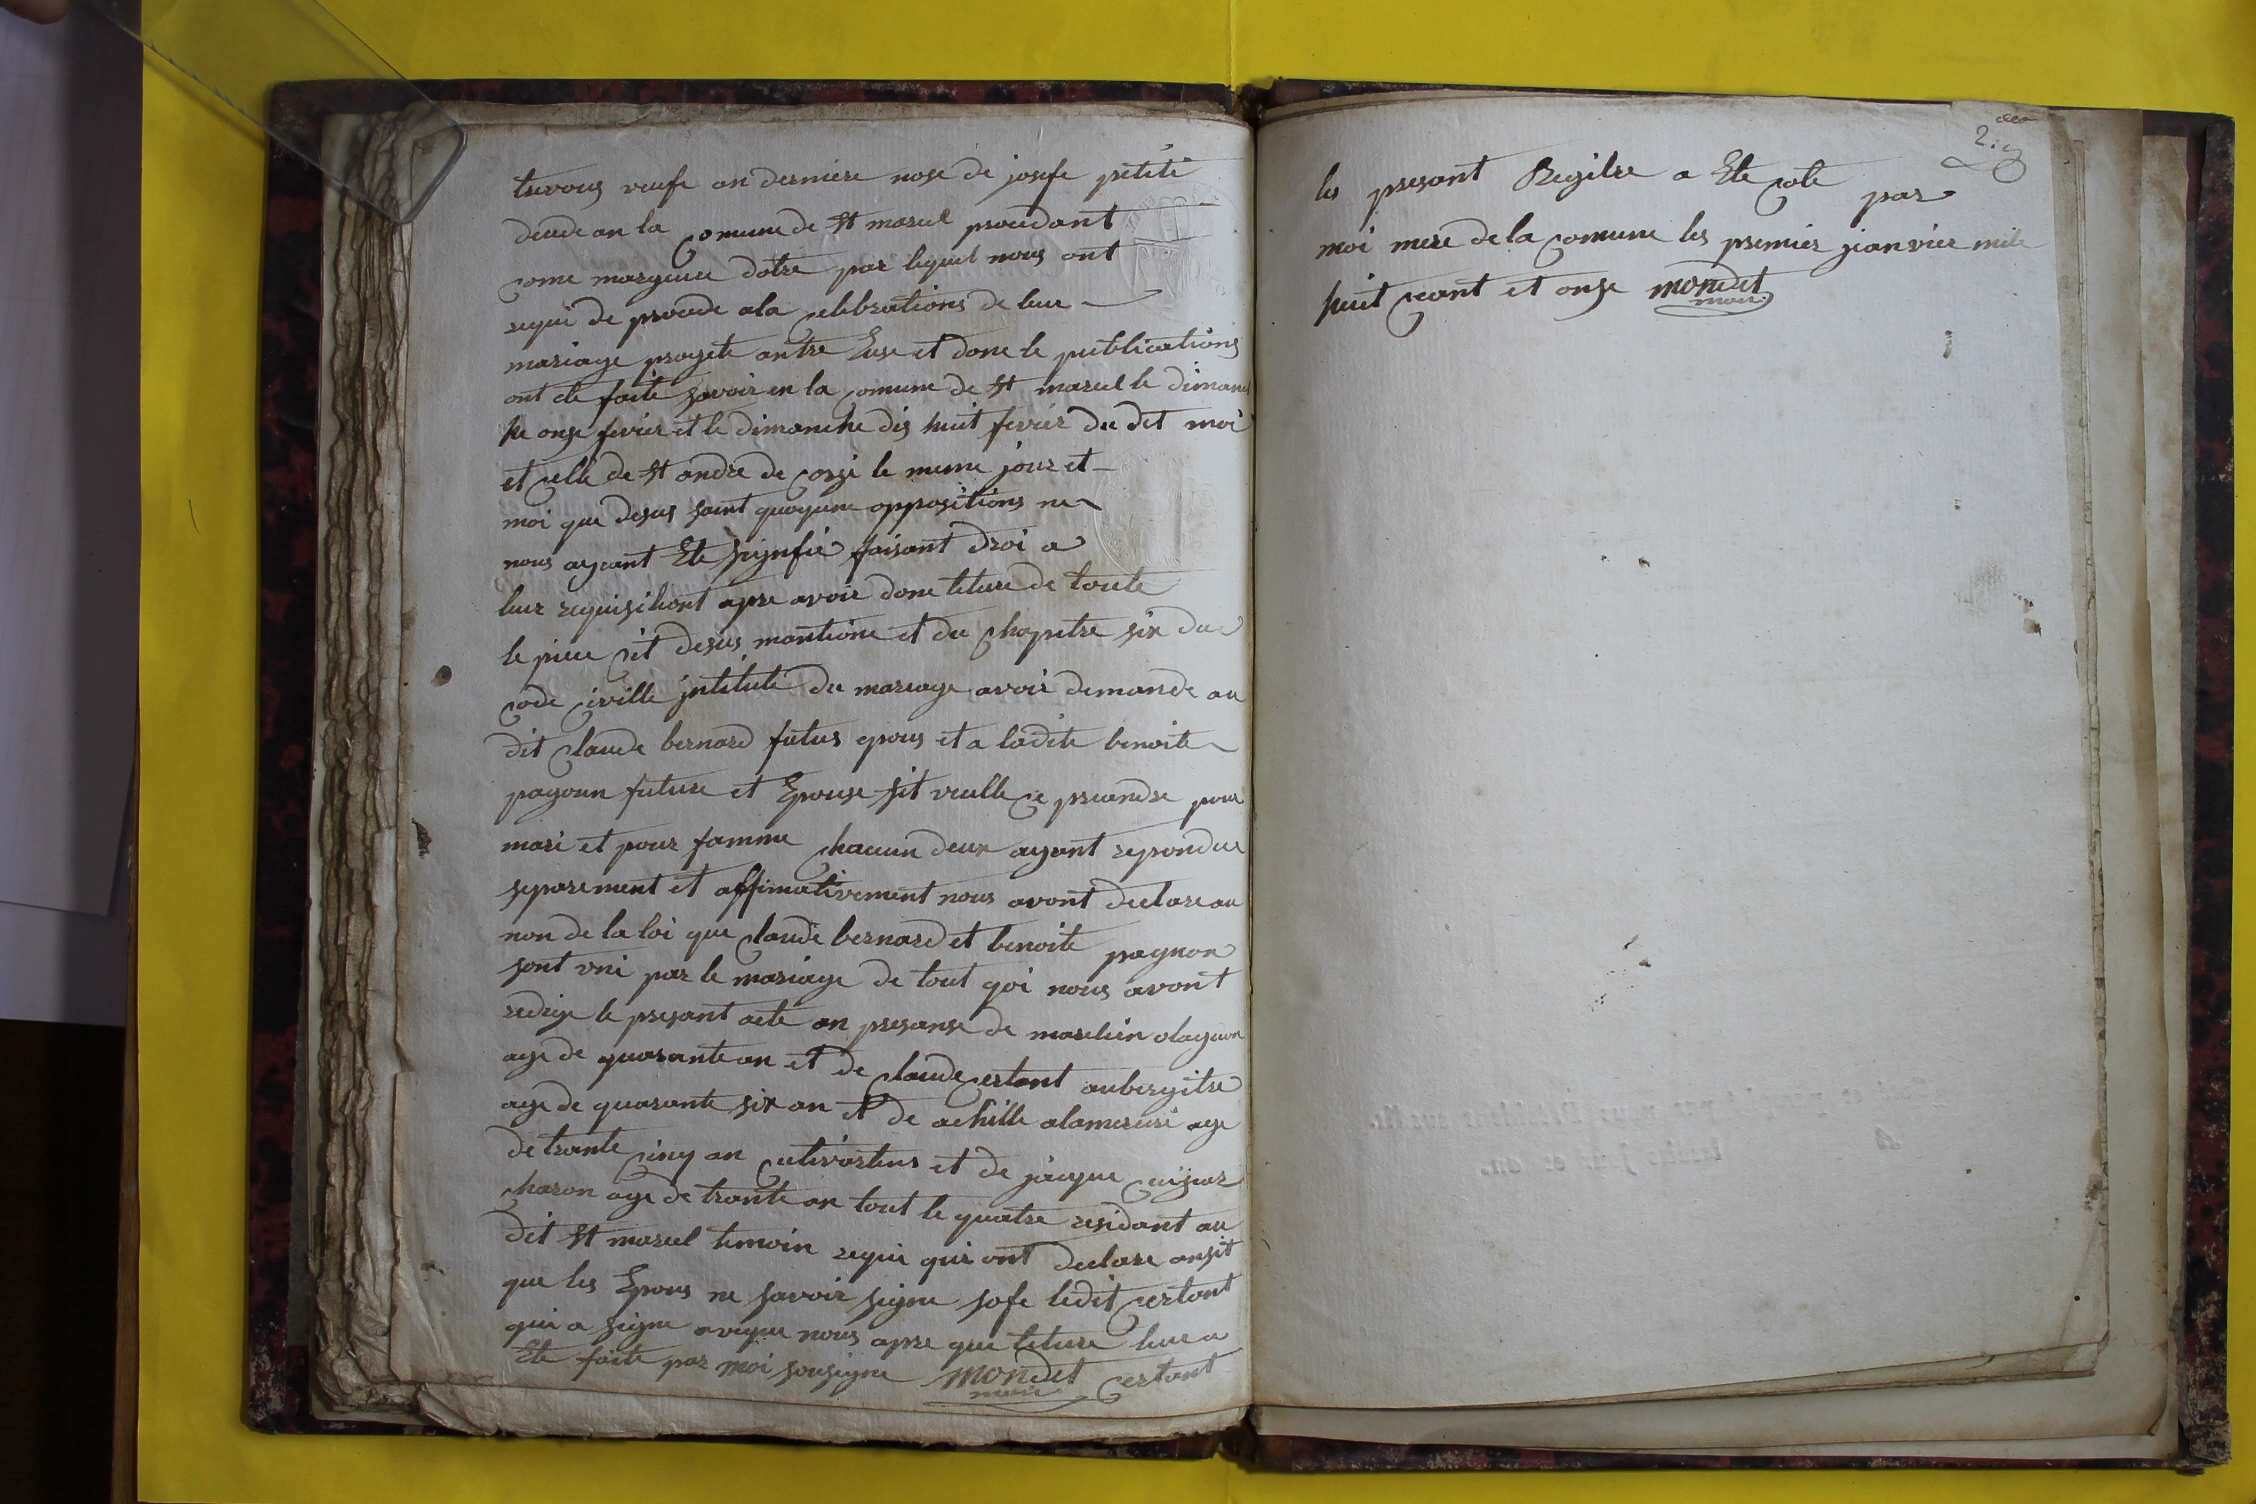 trevous veufe an derniere nose de josefe petiti
decede an la comune de St marcel procedant
come margeure dotre par lequel nous ont
requi de procede a la celebrations de leur
mariage progete antre Euse et done le publications
ont ete faite savoir en la comune de St marcel le dimanc
he onze fevrier et le dimanche dis huit fevrier du dit moi
et celle de St andre de corsi le meme jour et
moi que desus sant quoqune oppositions ne
nous ayeant Ete signfie faisant droi a
leur requisitiont apre avoir done leture de toute
le piece cit desus mantione et du chapitre six du
code civille intitule du mariage avoir demande au
dit claude bernard futus epous et a ladite benoite
pagnon future et Epouse sit veulle ce preandre pour
mari et pour famme chacun deux ayant repondue
separement et affimativement nous avont declare au
non de la loi que claude bernard et benoite pagnon
sont uni par le mariage de tout qoi nous avont
redige le presant acte an presanse de marcelin olagnon
age de quarante an et de claude certant aubergitre
age de quarante six an et de achille alamerceri age
de trante cinq an cultivarteus et de jacque
charon age de trante an tout le quatre residant au
dit St marcel temoin requi qui ont declare ansit
que les Epous ne savoir signe sofe ledit certant
qui a signe aveque nous apre que leture leur a
Ete faite par moi sousigne mondet certant
maire
2
les presant Regitre a Ete cote par
moi mere de la comune les premier jianvier mile
huit ceant et onze mondet
maire